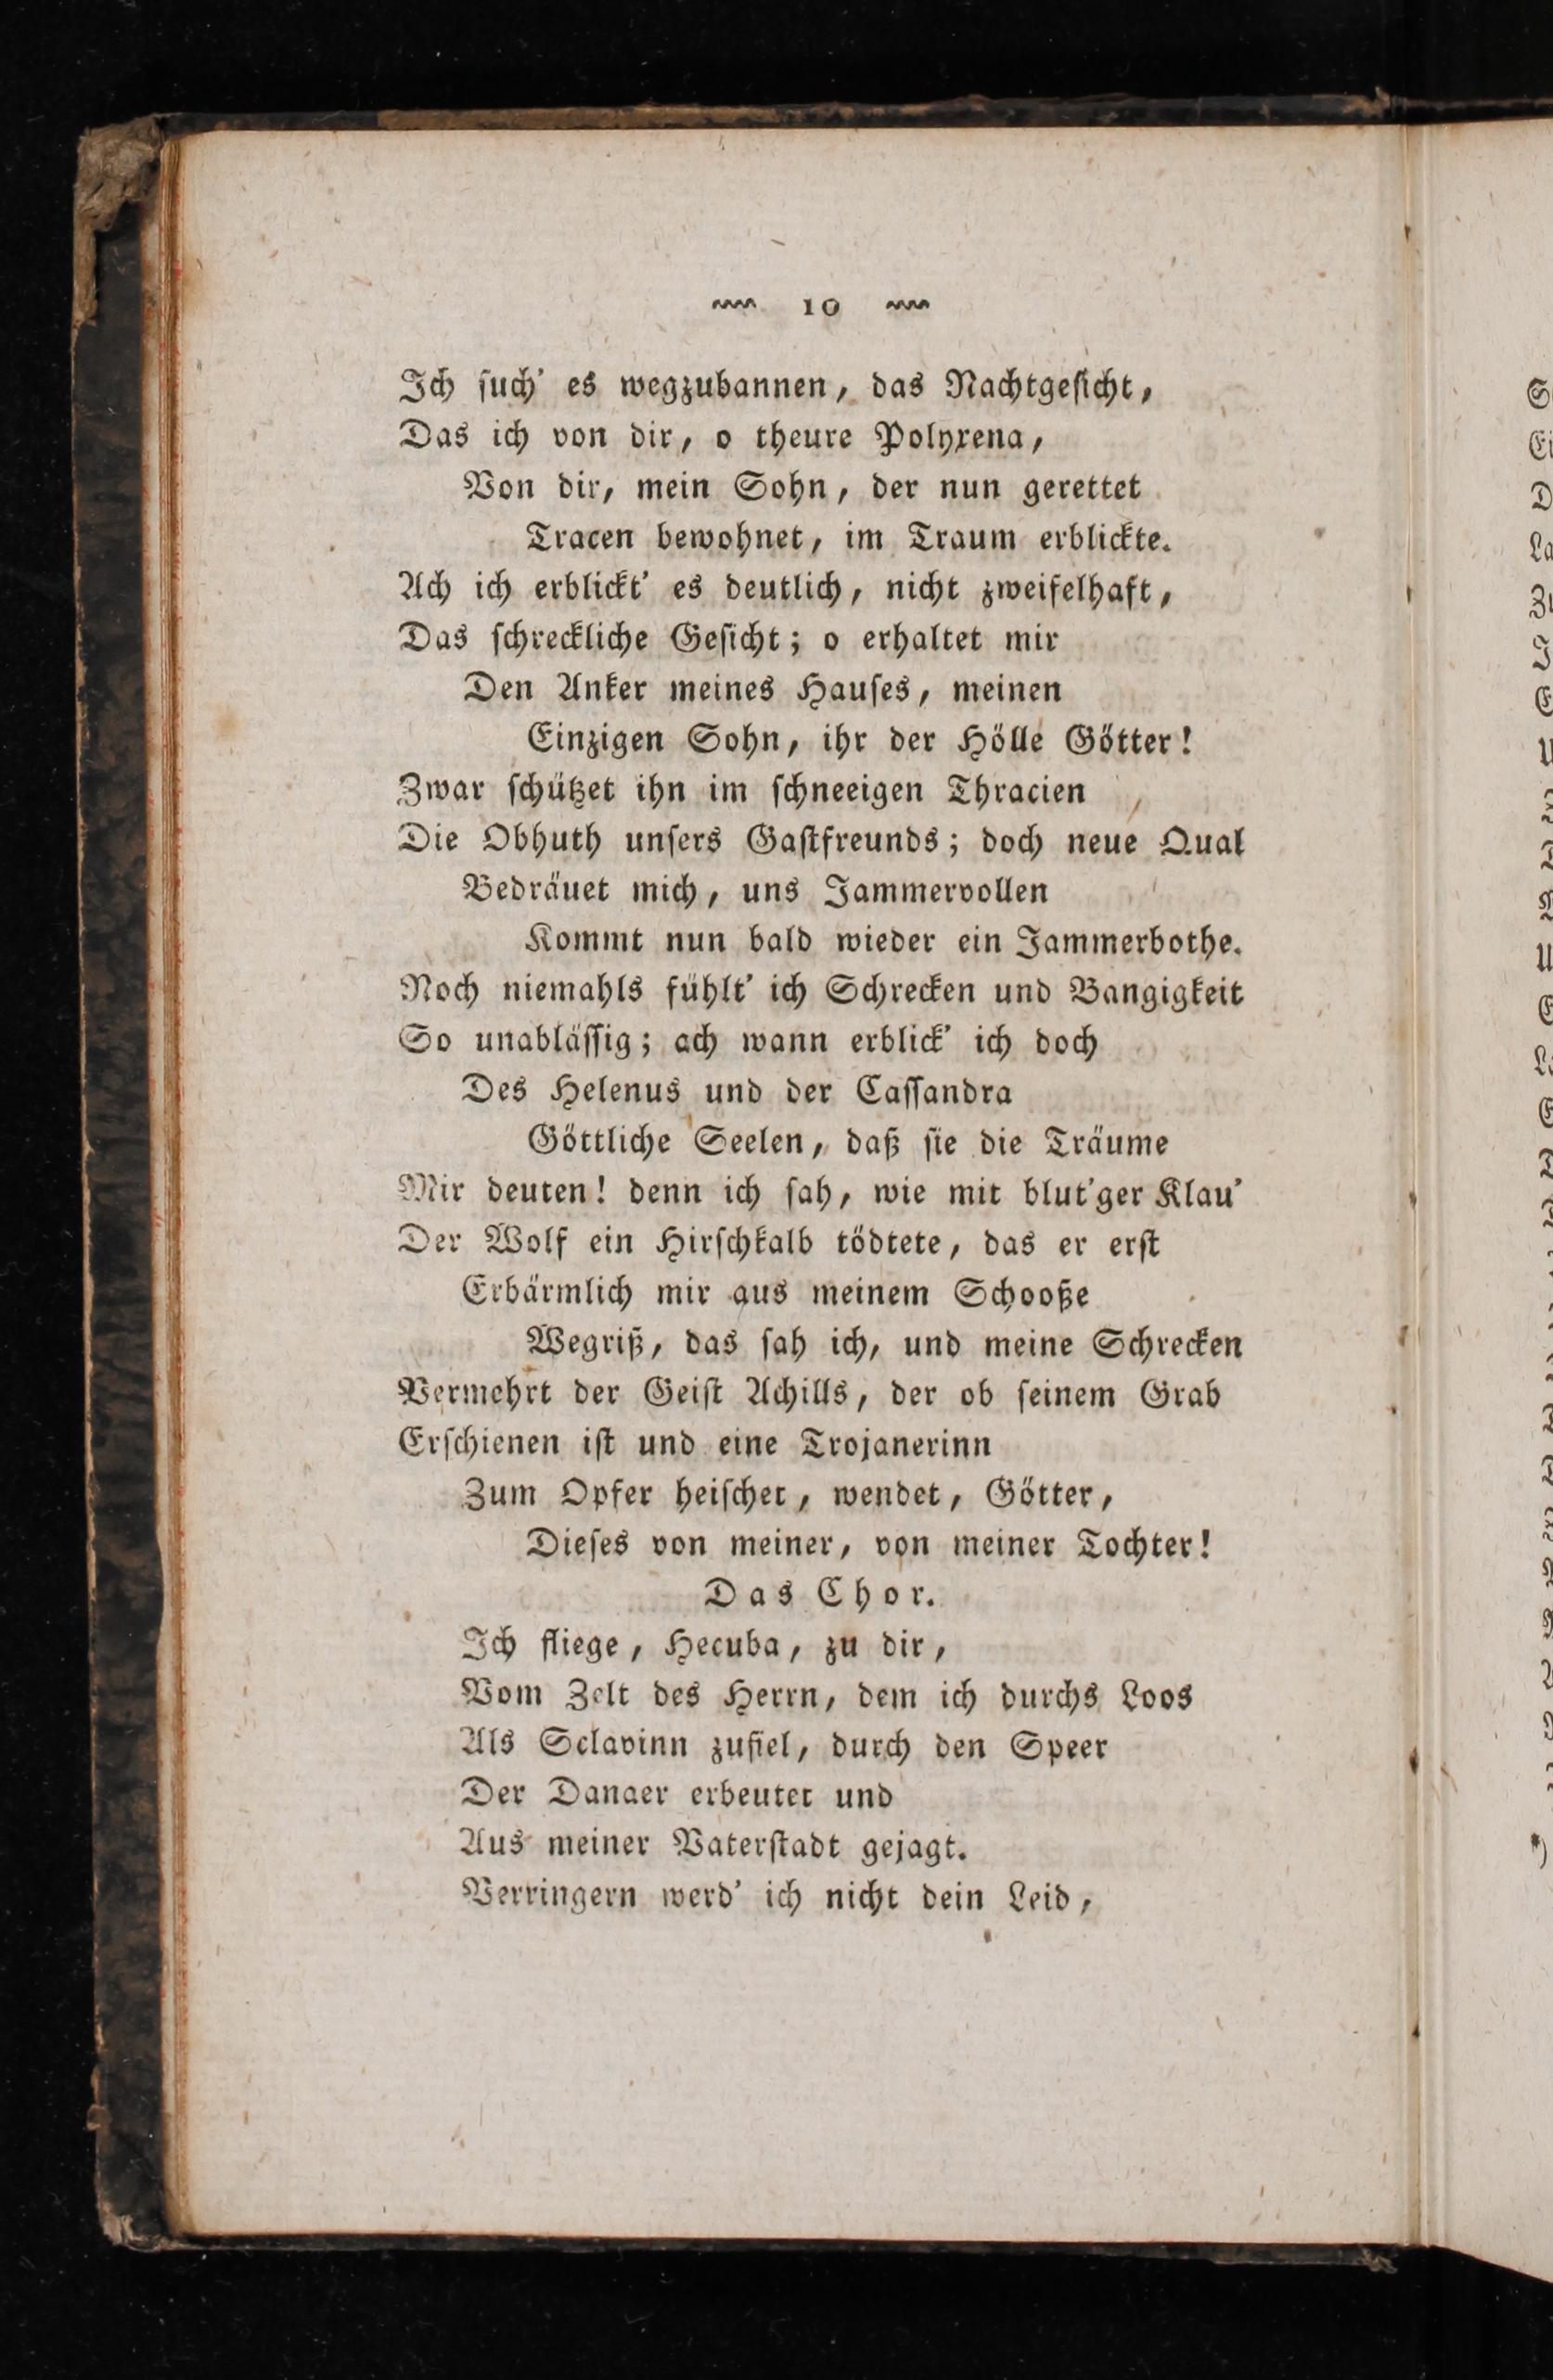 10
Ich ſuch' es wegzubannen, das Nachtgeſicht,
Das ich von dir, o theure Polyxena,
Von dir, mein Sohn, der nun gerettet
Tracen bewohnet, im Traum erblickte.
Ach ich erblickt' es deutlich, nicht zweifelhaft,
Das ſchreckliche Geſicht; o erhaltet mir
Den Anker meines Hauſes, meinen
Einzigen Sohn, ihr der Hölle Götter!
Zwar ſchützet ihn im ſchneeigen Thracien
Die Obhuth unſers Gaſtfreunds; doch neue Qual
Bedräuet mich, uns Jammervollen
Kommt nun bald wieder ein Jammerbothe.
Noch niemahls fühlt' ich Schrecken und Bangigkeit
So unabläſſig; ach wann erblick' ich doch
Des Helenus und der Caſſandra
Göttliche Seelen, daß ſie die Träume
Mir deuten! denn ich ſah, wie mit blut'ger Klau'
Der Wolf ein Hirſchkalb tödtete, das er erſt
Erbärmlich mir aus meinem Schooße
Wegriß, das ſah ich, und meine Schrecken
Vermehrt der Geiſt Achills, der ob ſeinem Grab
Erſchienen iſt und eine Trojanerinn
Zum Opfer heiſchet, wendet, Götter,
Dieſes von meiner, von meiner Tochter!
Das Chor.
Ich fliege, Hecuba, zu dir,
Vom Zelt des Herrn, dem ich durchs Loos
Als Sclavinn zufiel, durch den Speer
Der Danaer erbeutet und
Aus meiner Vaterſtadt gejagt.
Verringern werd' ich nicht dein Leid,